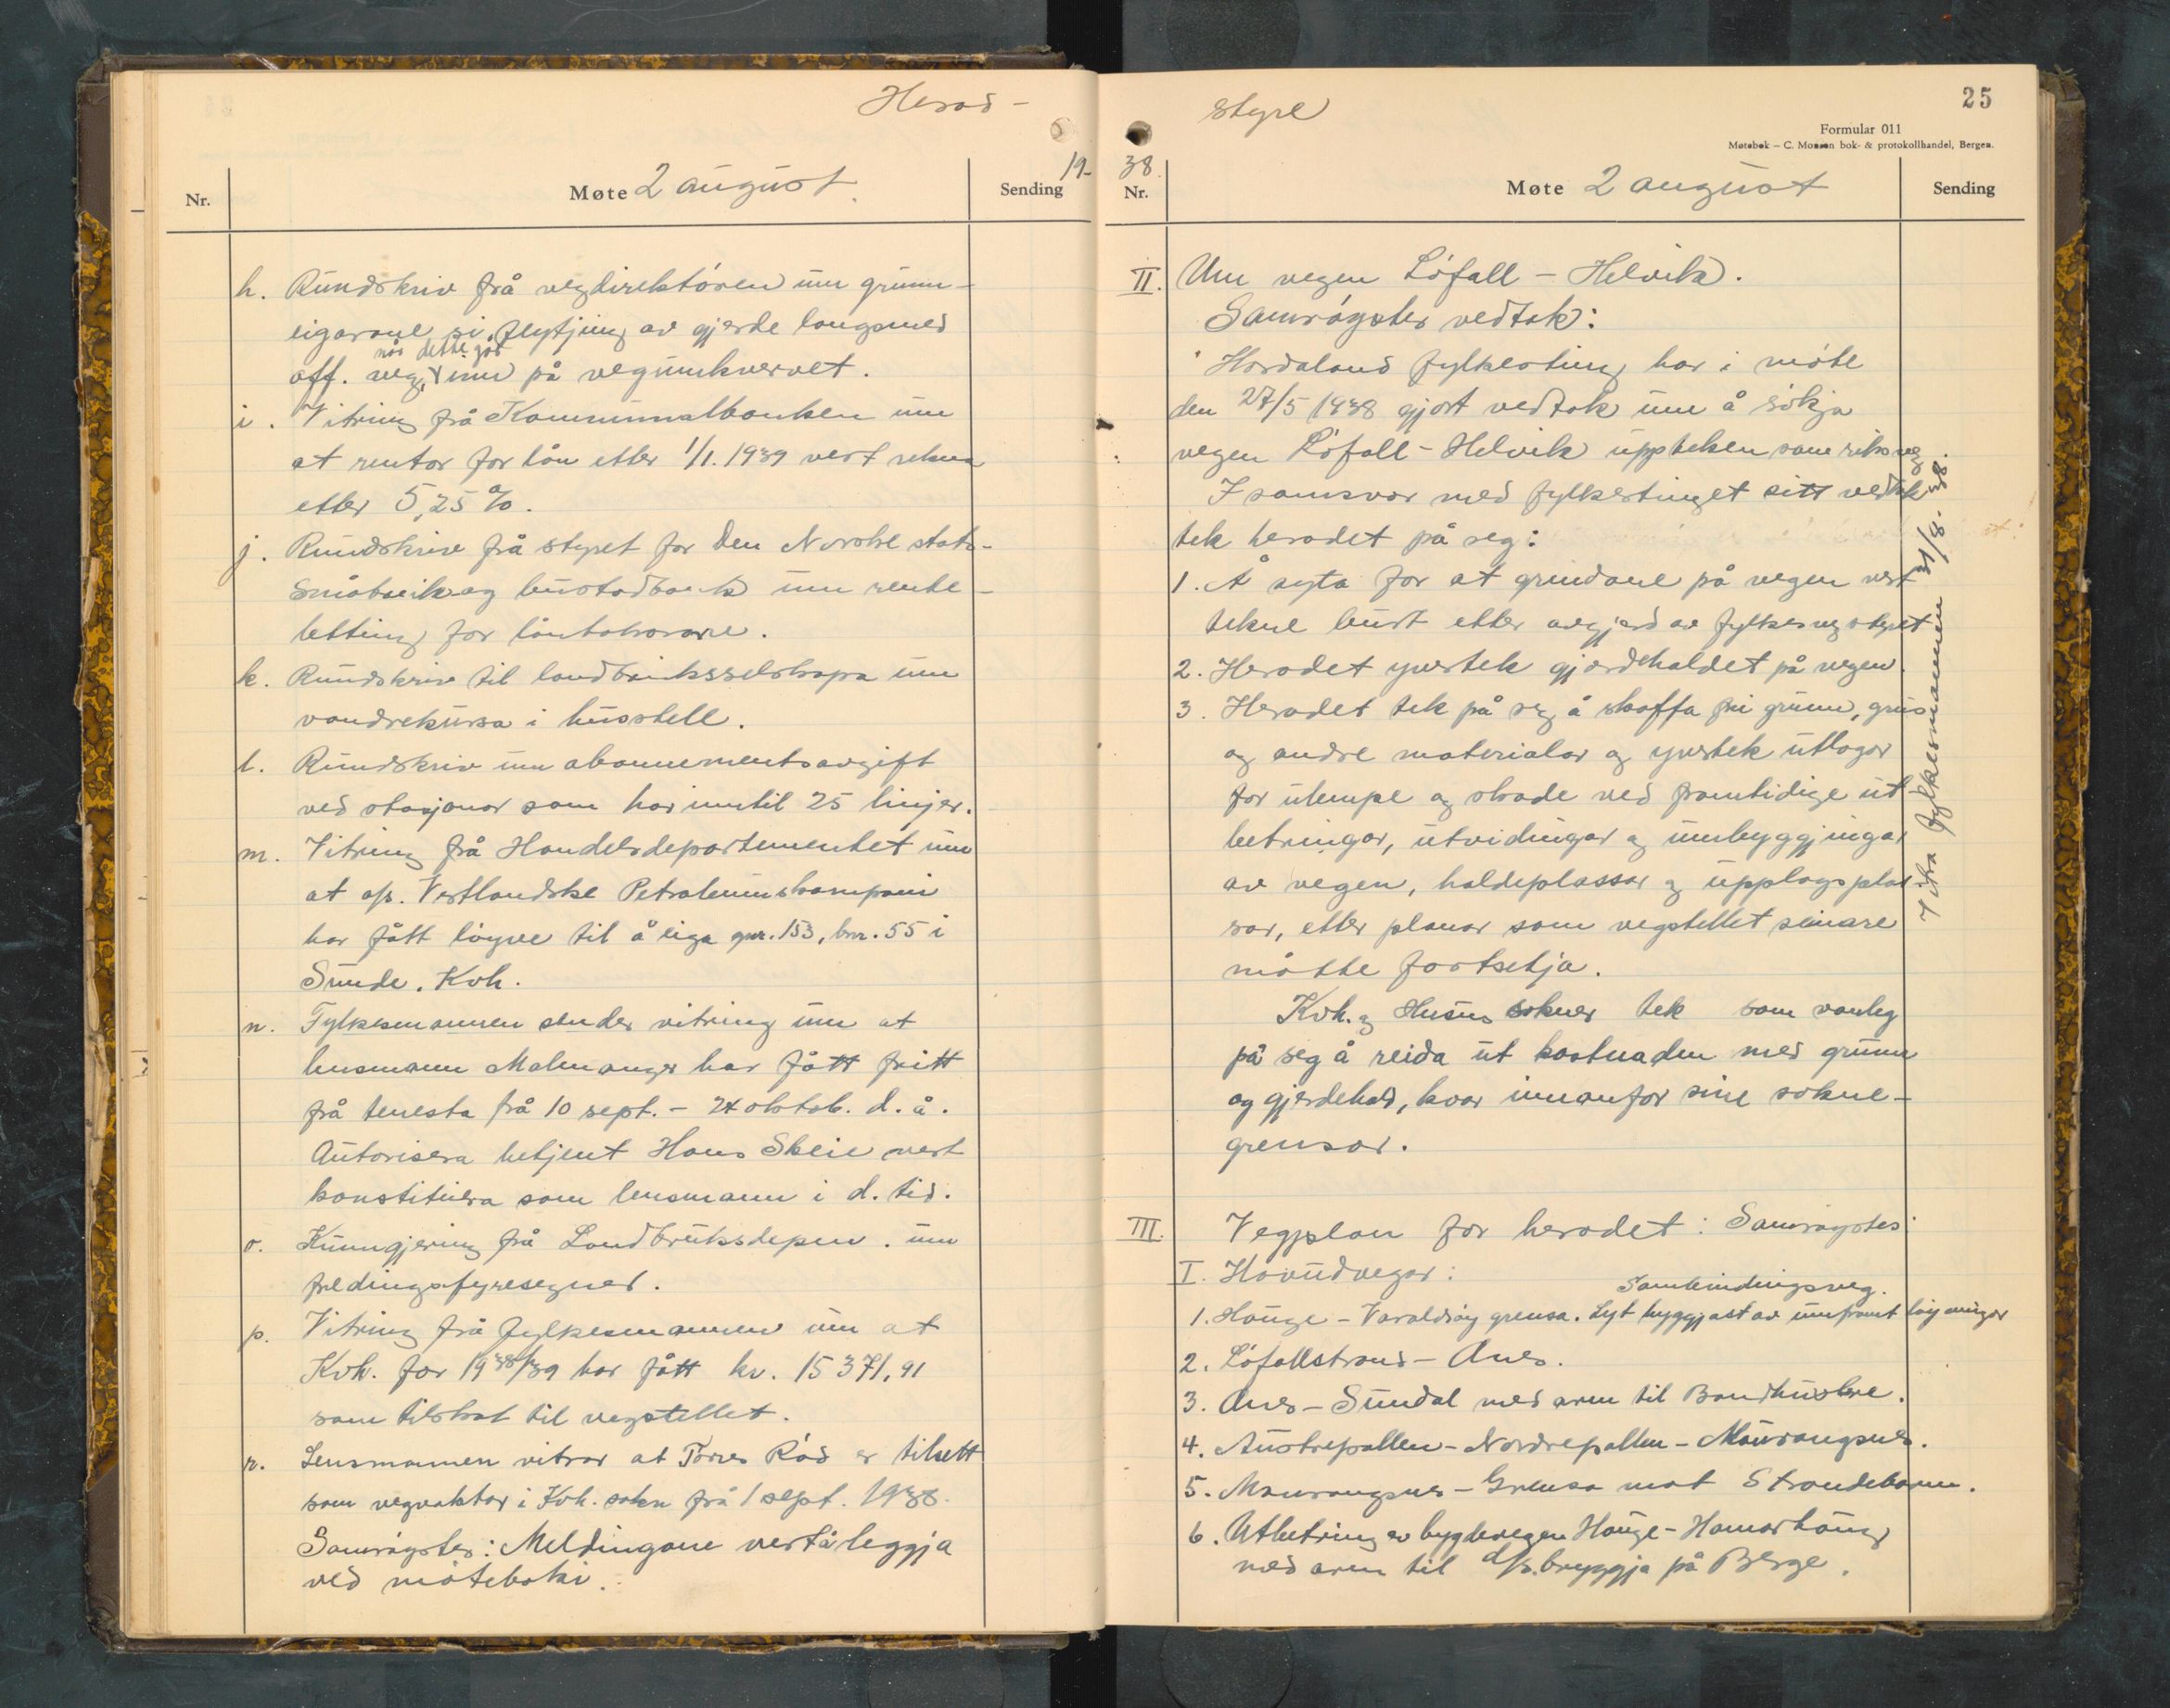 Herad-
Nr.
Møte 2 august.
Sending
19-
h. Rundskriv frå vegdirektóren um grunn-
eigarane si flytjing av gjerde langsmed
når dette går
off. veg, inn på vegumkvervet.
i. Vitring frå Kommunalbanken um
at rentor for lån etter 1/1. 1939 vert rekna
etter 5,25 %.
j. Rundskriv frå styret for Den Norske stats-
småbruk og bustadbank um rente-
letting for låntakarane.
k. Rundskriv til landbruksselskapa um
vandrekursa i husstell.
l. Rundskriv um abonnementsavgift
ved stasjonar som har inntil 25 linjer.
m. Vitring frå Handelsdepartementet um
at a/s. Vestlandske Petroleumskompani
har fått lóyve til å eiga gnr. 153, bnr. 55 i
Sunde. Kvh.
n. Fylkesmannen sender vitring um at
lensmann Malmanger har fått fritt
frå tenesta frå 10 sept. - 24 oktob. d. å.
Autorisera betjent Hans Skeie vert
konstituera som lensmann i d. tid.
o. Kunngjering frå Landbruksdepen. um
fredingsfyresegner.
p. Vitring frå fylkesmannen um at
Kvh. for 1938/39 har fått kr. 15371,91
som tilskot til vegstellet.
r. Lensmannen vitrar at Torres Ród er tilsett
som vegvaktar i Kvh. sokn frå 1 sept. 1938.
Samróystes: Meldingane vert å leggja
ved móteboki.
styre
25
Formular 011
Møtebok - C. Monsen bok- & protokollhandel, Bergen.
38.
Nr.
Møte 2 august
Sending
II. Um vegen Lófall - Helvik.
Samróystes vedtak:
Hordaland fylkesting har i móte
den 27/5 1938 gjort vedtak um å sókja
vegen Lófall - Helvik uppteken som riksveg.
I samsvar med fylkestinget sitt vedtak
tek heradet på seg:
1. Å syta for at grindane på vegen vert
tekne burt etter avgjerd av fylkesvegstyret
2. Heradet yvertek gjerdehaldet på vegen.
3. Heradet tek på seg å skaffa fri grunn, grus
og andre materialar og yvertek utlagor
for ulempe og skade ved framtidige ut-
betringar, utvidingar og umbyggjingar
av vegen, haldeplassar og upplagsplas-
sar, etter planar som vegstellet seinare
måtte fastsetja.
Kvh. og Husnes sokner tek som vanleg
på seg å reida ut kostnaden med grunn
og gjerdehald, kvar innanfor sine sokne-
grensor.
Ifra fylkesmannen 31/8. 38.
III. Vegplan for heradet: Samróystes:
I. Hovudvegar:
Sambindingsveg.
1. Hauge - Varaldsóy grensa. Lyt byggjast av umframt lóyvingar
2. Lófallstrand - Ænes.
3. Ænes - Sundal med arm til Bondhusbre.
4. Austrepollen - Nordrepollen - Maurangsnes.
5. Maurangsnes - Grensa mot Strandebarm.
6. Utbetring av bygdevegen Hauge - Hamarhaug
med arm til d/s. bryggja på Berge.